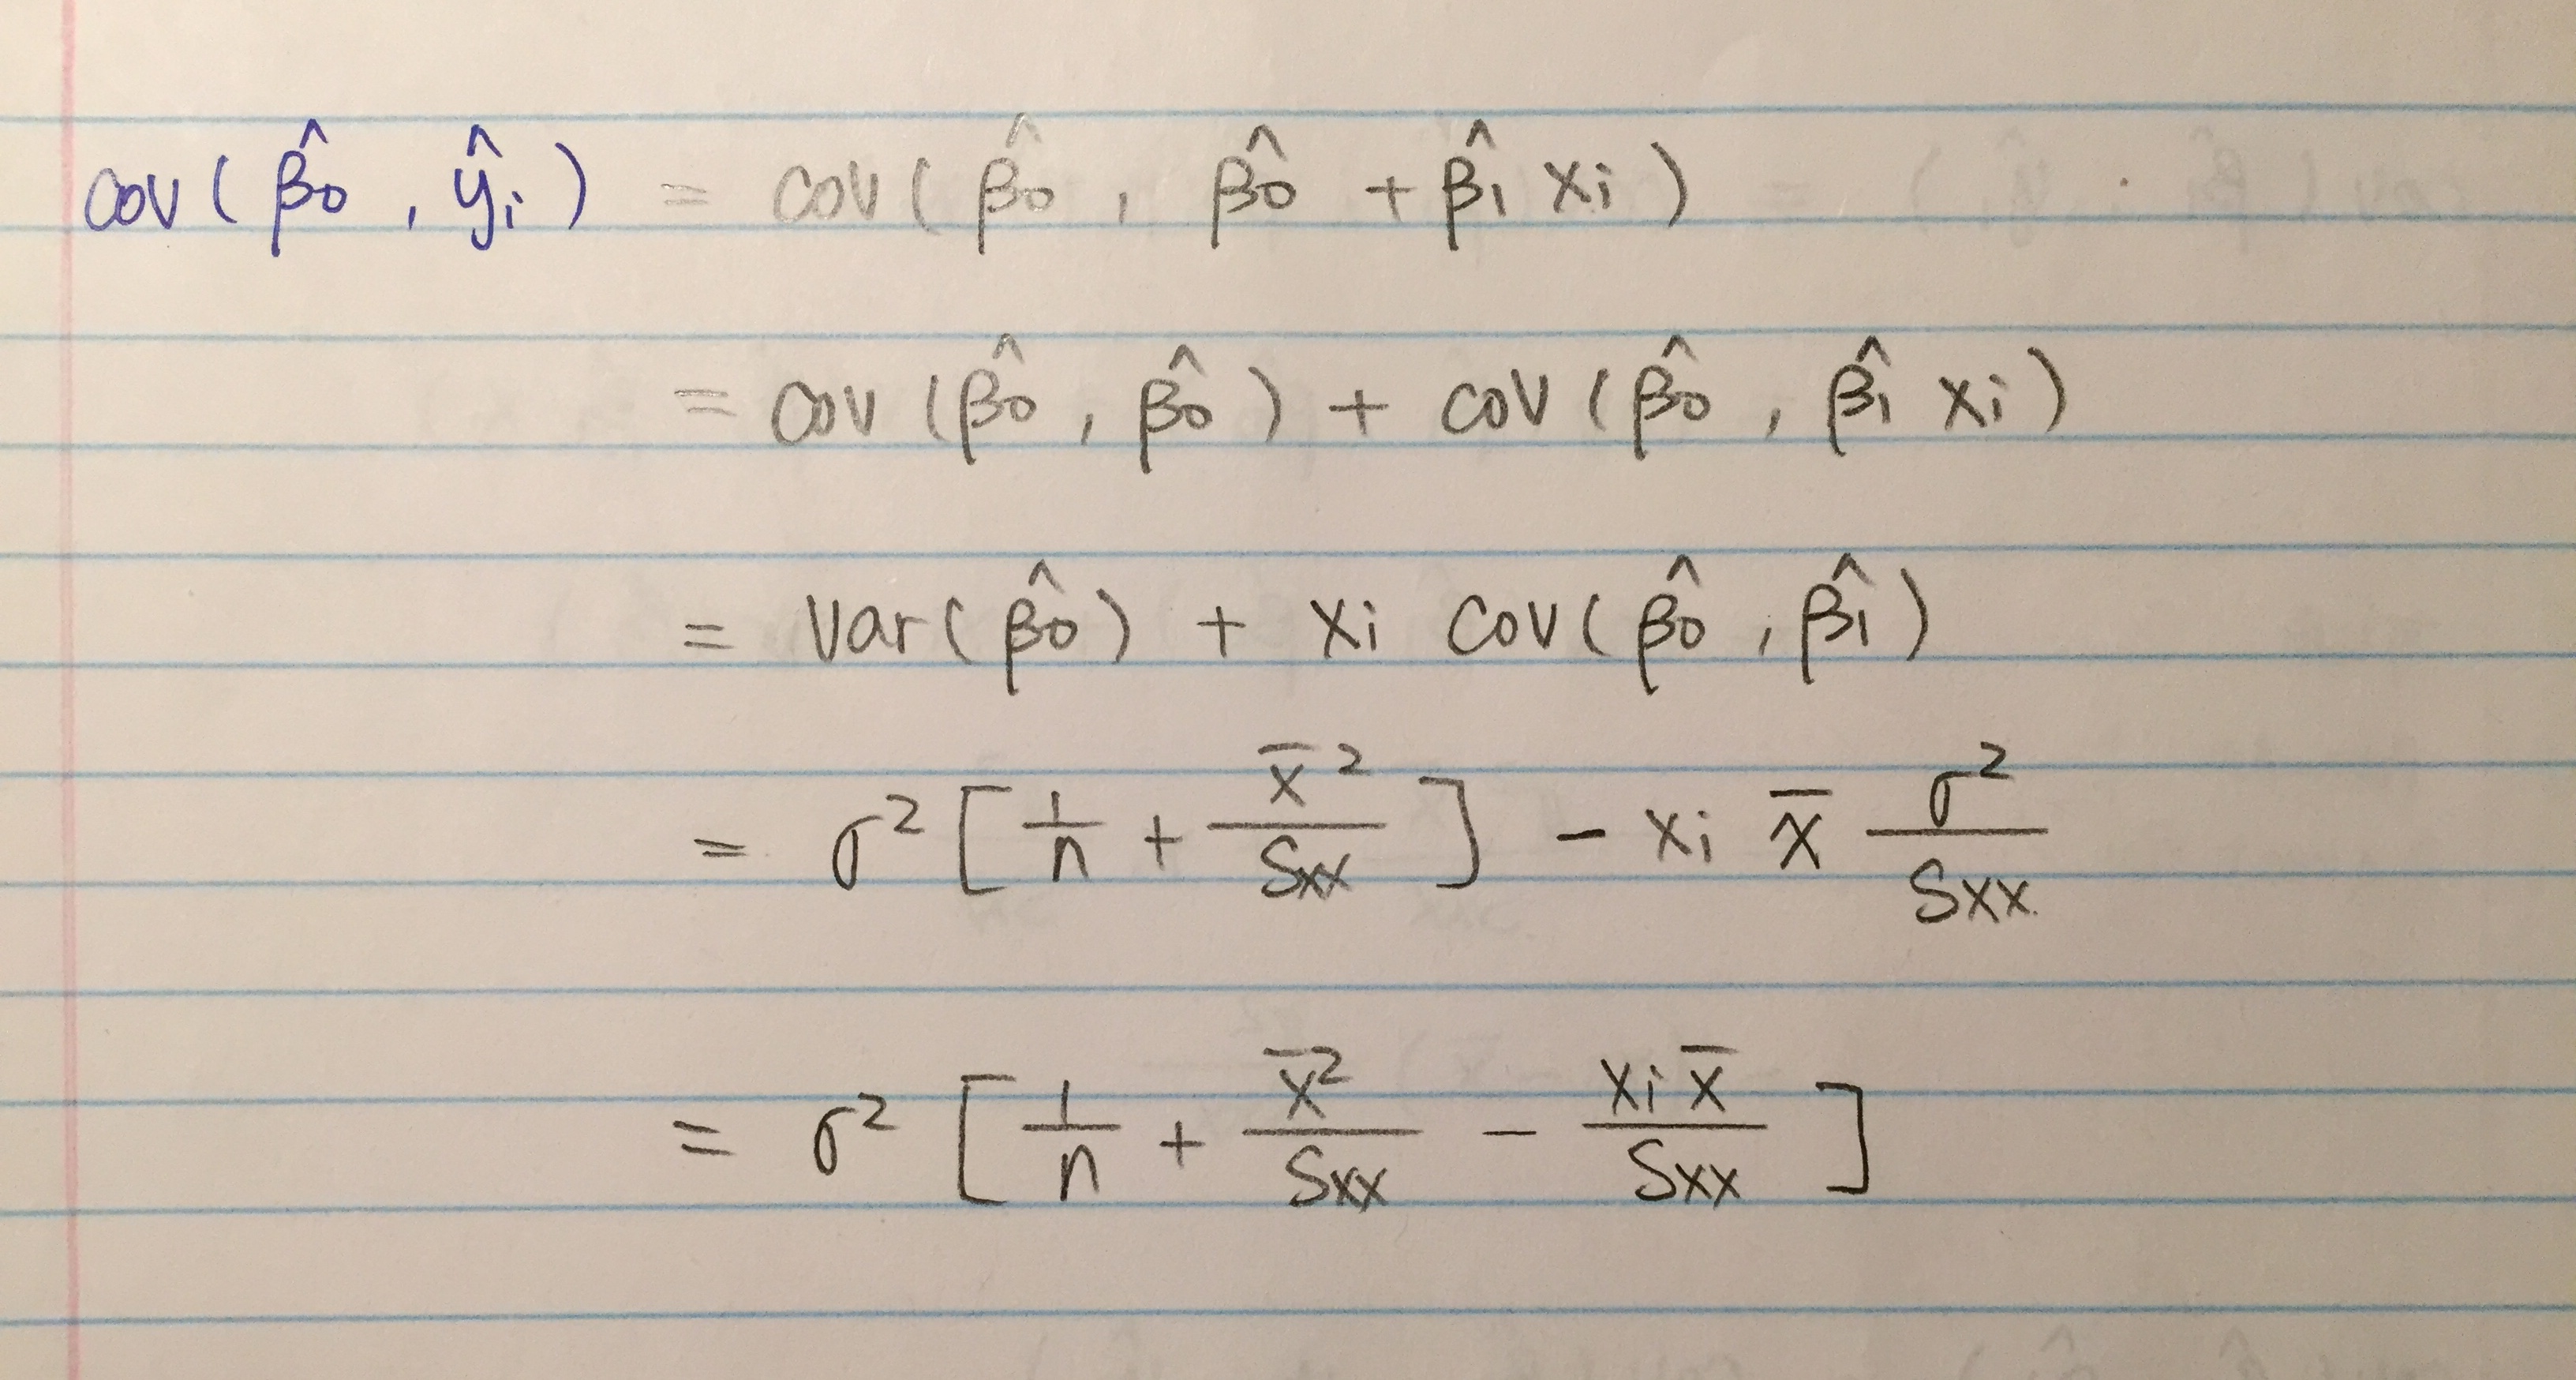 cov(β̂0, ŷi) = cov(β̂0, β̂0 + β̂1 xi)
= cov(β̂0, β̂0) + cov(β̂0, β̂1 xi)
= Var(β̂0) + xi cov(β̂0, β̂1)
= σ² [1/n + x̄²/Sxx] − xi x̄ σ²/Sxx
= σ² [1/n + x̄²/Sxx − xi x̄/Sxx]